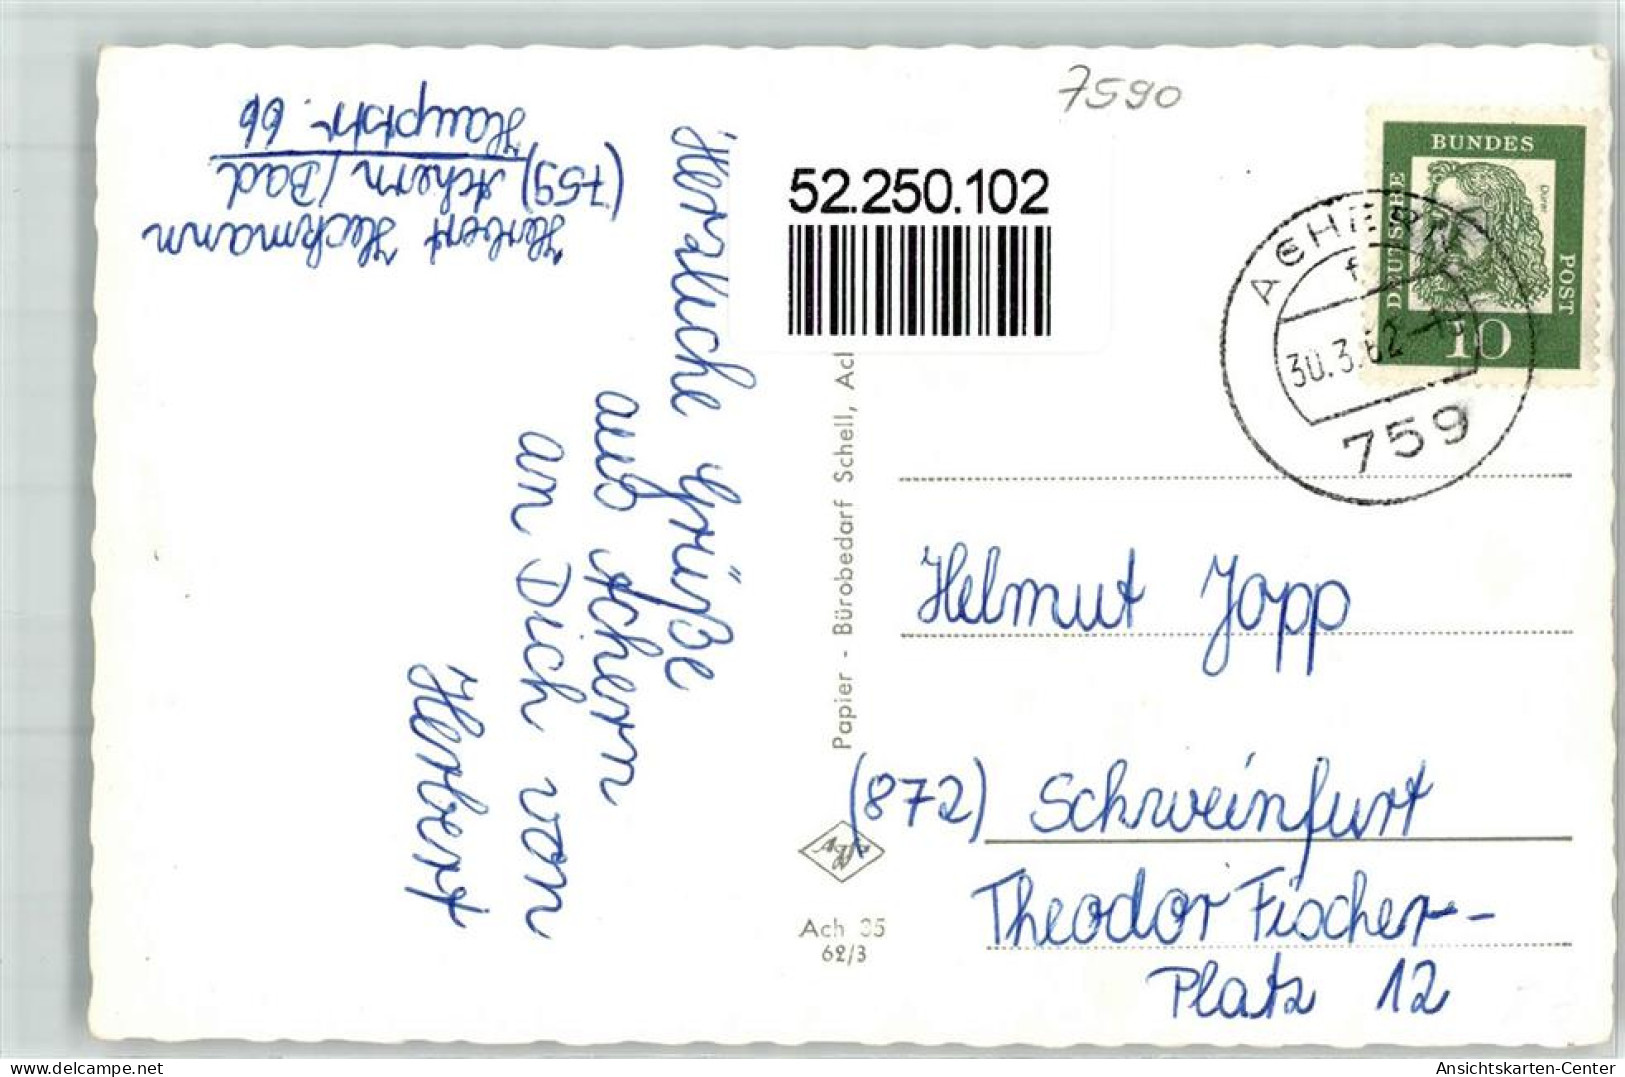 7590
Herbert Heckmann
(759) Achern/Bad
Hauptstr. 66
Herzliche Grüße
aus Achern
an Dich von
Herbert
52.250.102
Papier - Bürobedarf Schell, Ach
DEUTSCHE
BUNDES
POST
Dürer
10
ACHERN
f
30.3.62
759
Helmut Jopp
(872) Schweinfurt
Theodor Fischer-
Platz 12
Ach 35
62/3
www.ansichtskarten-center.de
Ansichtskarten-Center